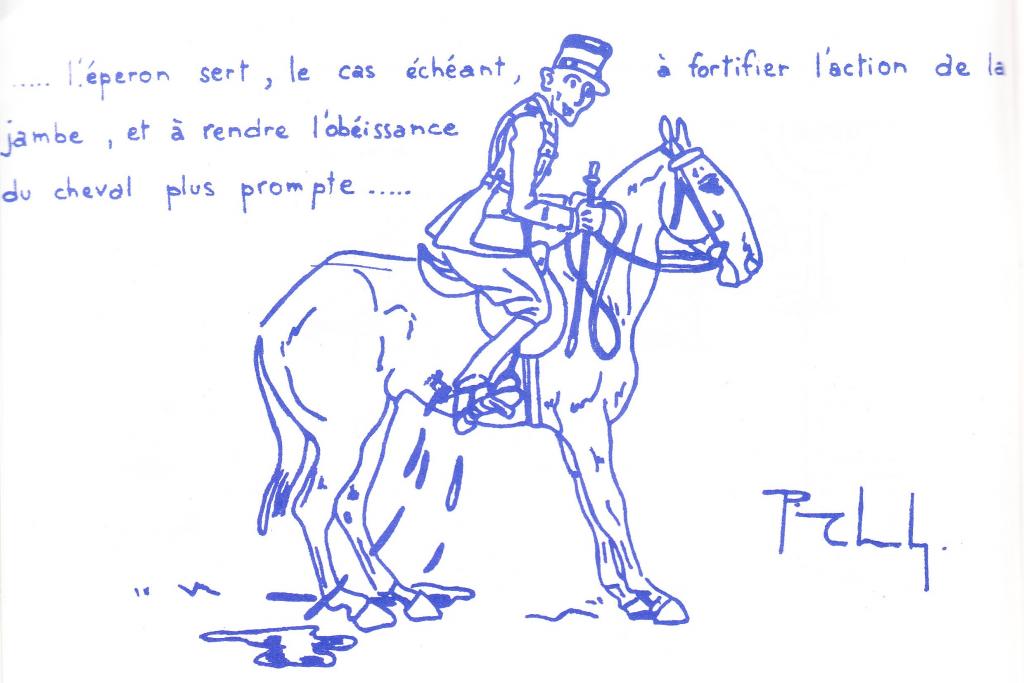 ..... l'éperon sert, le cas échéant, à fortifier l'action de la
jambe, et à rendre l'obéissance
du cheval plus prompte.....